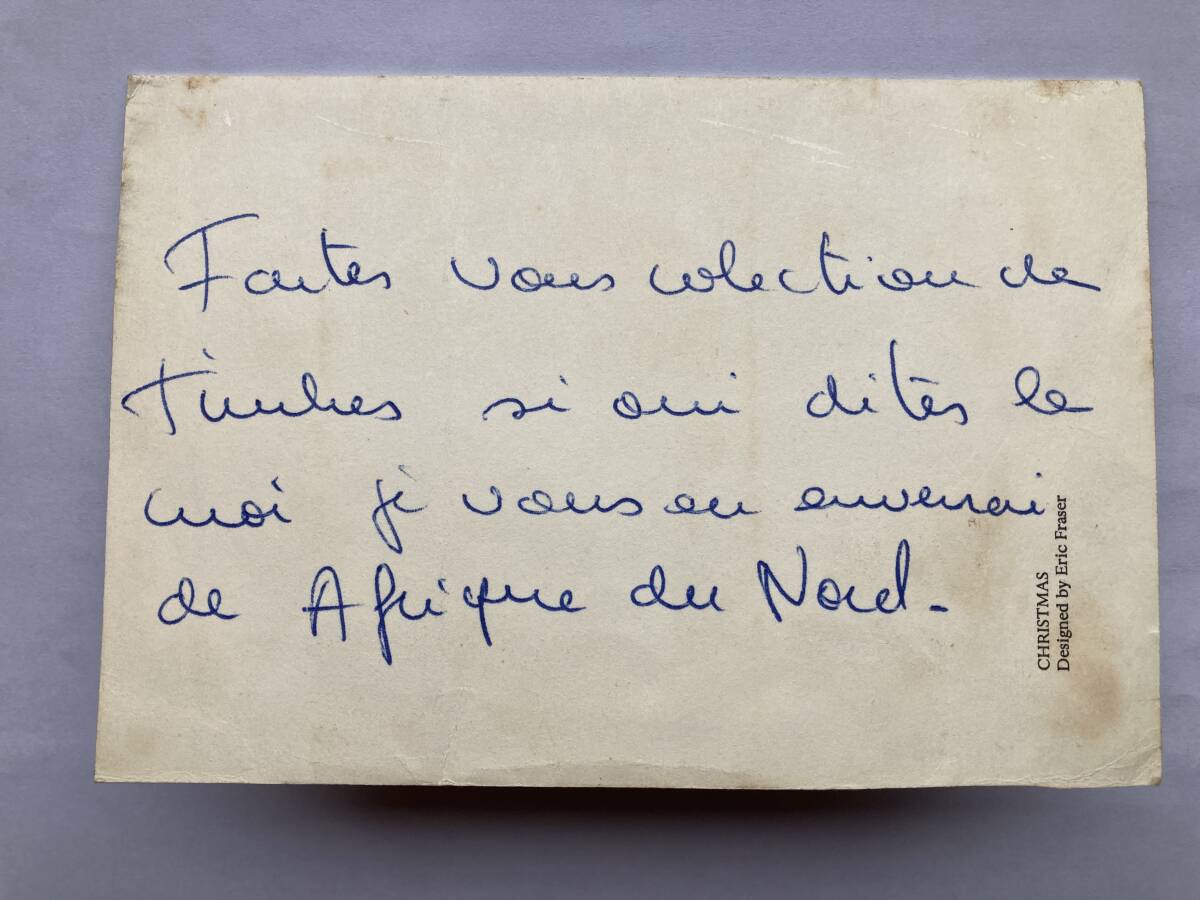 Faites vous colection de
timbres si oui dites le
moi je vous en enverrai
de Afrique du Nord.
CHRISTMAS
Designed by Eric Fraser